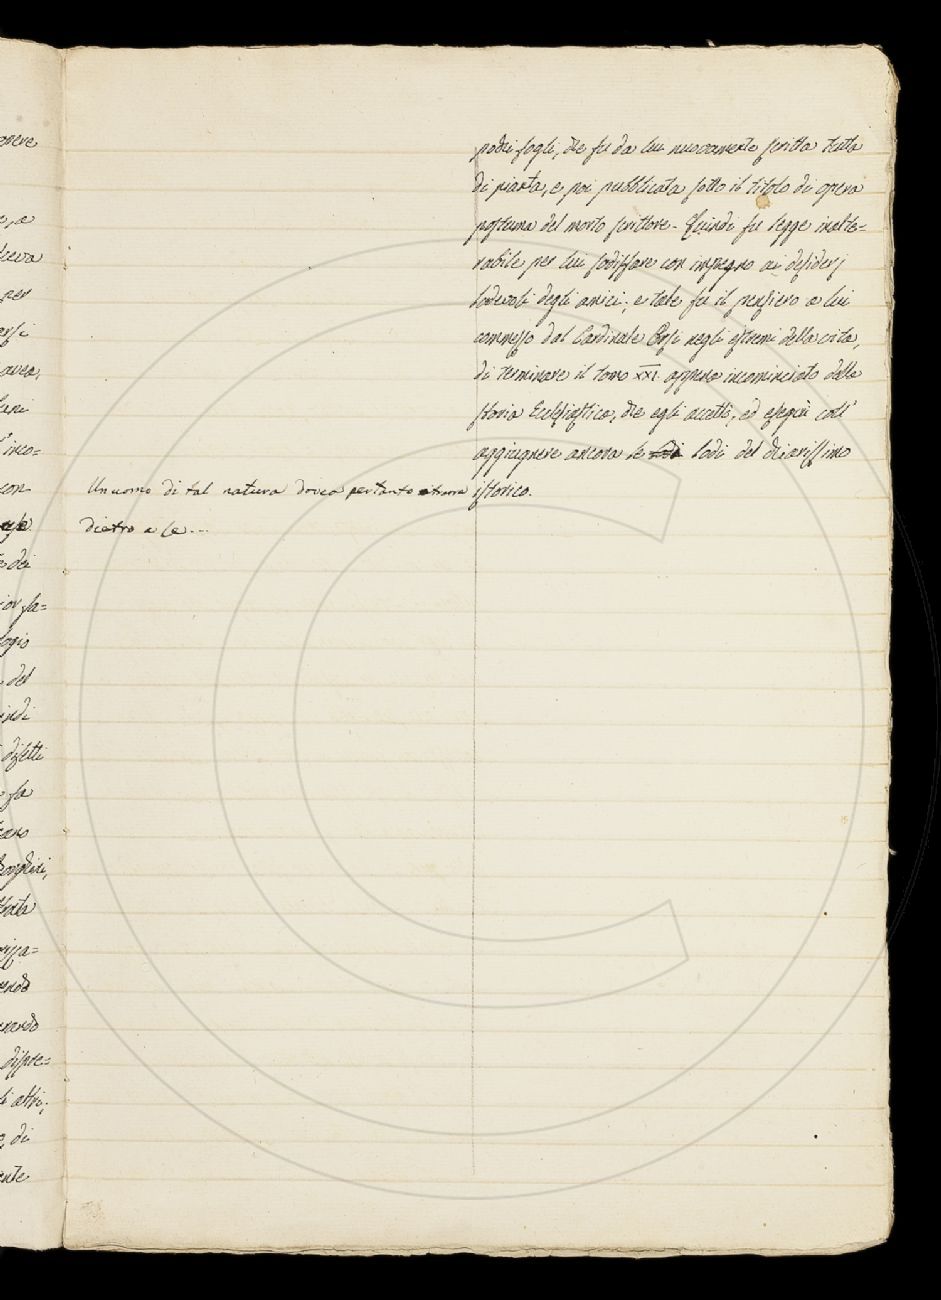 pochi fogli, che fu da lui nuovamente scritta tutta
di pianta, e poi pubblicata sotto il titolo di opera
postuma del morto scrittore. Quindi fu legge inalte=
rabile per lui sodisfare con impegno ai desiderj
lodevoli degli amici; e tale fu il pensiero a lui
commesso dal Cardinale Orsi negli estremi della vita,
di terminare il tomo XXI appena incominciato della
storia Ecclesiastica, che egli accettò, ed eseguì coll'
aggiugnere ancora le lodi del chiarissimo
istorico.
Un uomo di tal natura dovea pertanto
dietro a se...
enere
o, a
ceva
per
ersi
avea,
inco=
con
dei
ior fa=
logio
del
indi
difetti
fa
trata
rizza=
endo
nardo
dispre=
li altri;
e di
ente